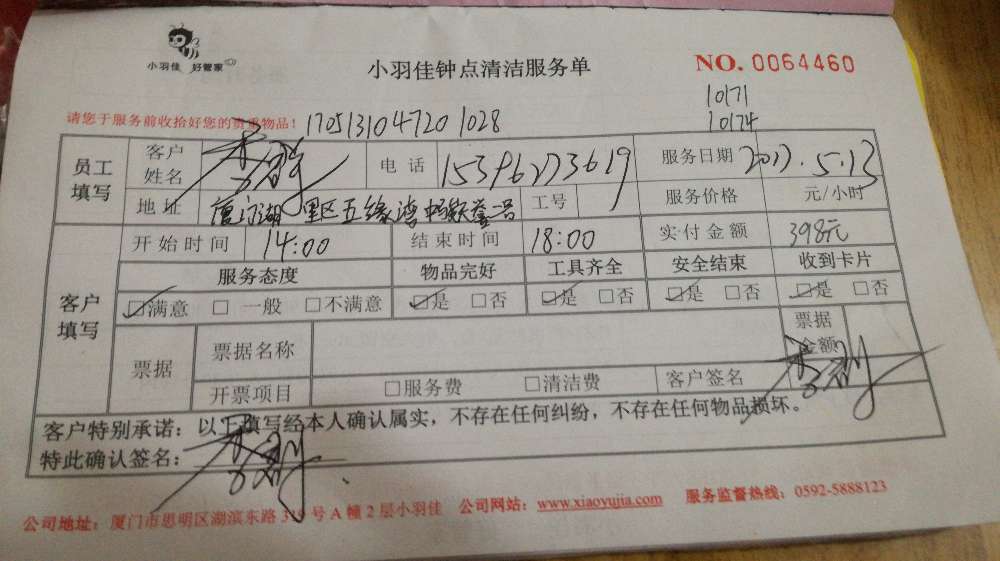 小羽佳 好管家
小羽佳钟点清洁服务单
NO. 0064460
请您于服务前收拾好您的贵重物品! 170513104720 1028
10171
10174
员工填写
客户姓名 电话 15396273619 服务日期 2017.5.13
地址 厦门湖里区五缘湾 工号 服务价格 元/小时
客户填写
开始时间 14:00 结束时间 18:00 实付金额 398元
服务态度 物品完好 工具齐全 安全结束 收到卡片
☑满意 □ 一般 □不满意 ☑是 □否 ☑是 □否 ☑是 □否 ☑是 □否
票据 票据名称 票据金额
开票项目 □服务费 □清洁费 客户签名
客户特别承诺：以上填写经本人确认属实，不存在任何纠纷，不存在任何物品损坏。
特此确认签名：
公司地址：厦门市思明区湖滨东路319号A幢2层小羽佳 公司网站：www.xiaoyujia.com 服务监督热线：0592-5888123